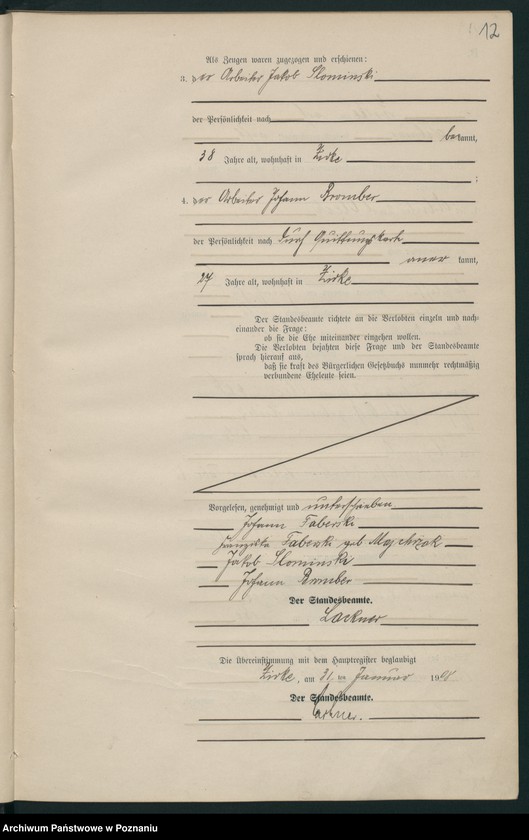 12
Als Zeugen waren zugezogen und erschienen:
3. der Arbeiter Jakob Slominski
der Persönlichkeit nach
bekannt,
38 Jahre alt, wohnhaft in Zirke
;
4. der Arbeiter Johann Bromber
der Persönlichkeit nach durch Quittungskarte
anerkannt,
27 Jahre alt, wohnhaft in Zirke
Der Standesbeamte richtete an die Verlobten einzeln und nach-
einander die Frage:
ob sie die Ehe miteinander eingehen wollen.
Die Verlobten bejahten diese Frage und der Standesbeamte
sprach hierauf aus,
daß sie kraft des Bürgerlichen Gesetzbuchs nunmehr rechtmäßig
verbundene Eheleute seien.
Vorgelesen, genehmigt und unterschrieben
Johann Faberski
Franziska Faberski geb. Majchrzak
Jakob Slominski
Johann Bromber
Der Standesbeamte.
Lackner
Die Übereinstimmung mit dem Hauptregister beglaubigt
Zirke, am 31. ten Januar 190
Der Standesbeamte.
Lackner.
Archiwum Państwowe w Poznaniu